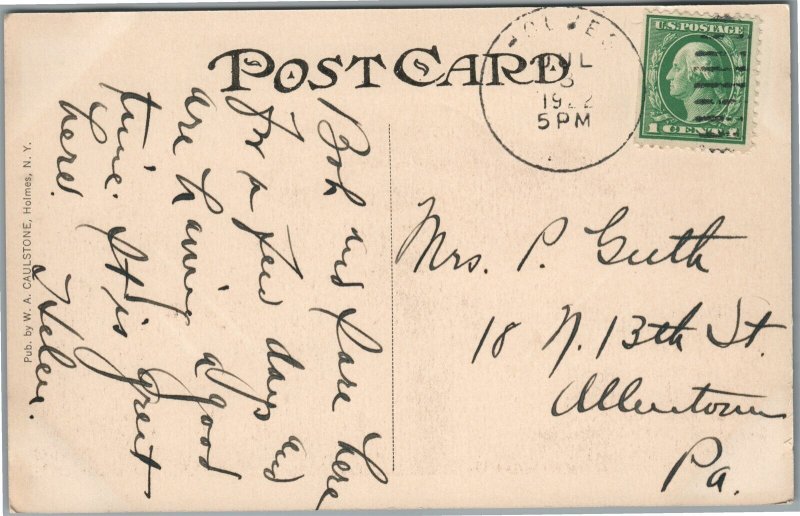 POST CARD
HOLMES
JUL
1922
5 PM
U.S. POSTAGE
1 CENT 1
Mrs. P. Guth
18 N. 13th St.
Allentown
Pa.
Bob and are here
for a few days and
are having a good
time. It is great
here.
Helen.
Pub. by W. A. CAULSTONE, Holmes, N. Y.